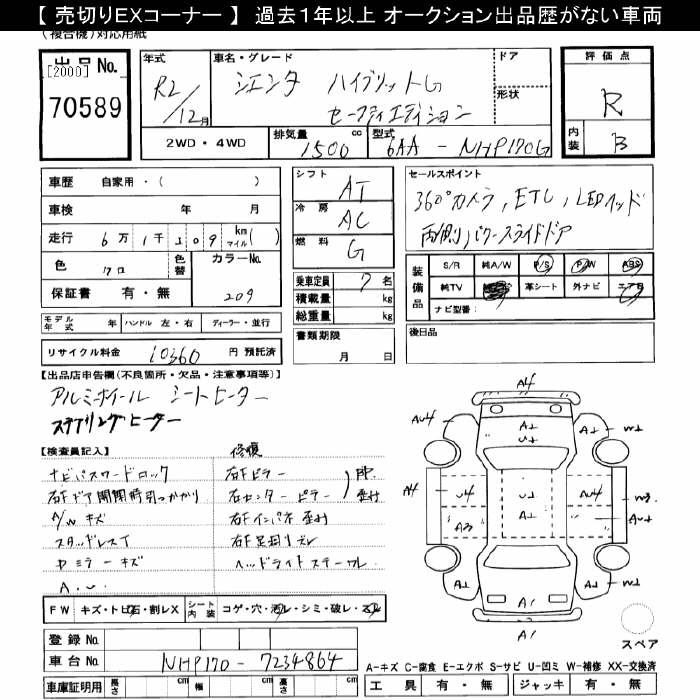 【 売切りEXコーナー 】 過去1年以上 オークション出品歴がない車両
(複合機)対応用紙
出品No.
[2000]
70589
年式
R2/12月
車名・グレード
シエンタ ハイブリットG
セーフティエディション
ドア
形状
評価点
R
内装
B
2WD・4WD
排気量
1500 cc
型式
6AA - NHP170G
車歴 自家用・( )
車検 年 月
走行 6万1千109 km マイル( )
色 クロ
色替
カラーNo.
209
保証書 有・無
シフト AT
冷房 AC
燃料 G
乗車定員 7名
積載量 kg
総重量 kg
書類期限
月 日
セールスポイント
360°カメラ, ETC, LEDヘッド
両側パワースライドドア
装備品
S/R 純A/W P/S P/W ABS
純TV 革シート 外ナビ エアB
ナビ型番:
後日品
モデル年式 年 ハンドル 左・右 ディーラー・並行
リサイクル料金 10360 円 預託済
【出品店申告欄(不良箇所・欠品・注意事項等)】
アルミホイール シートヒーター
ステアリングヒーター
【検査員記入】
修復
ナビパスワードロック
右Fドア開閉時引っかかり
A/W キズ
スタッドレスT
Rミラーキズ
A.U
右Fピラー
右センターピラー
歪み
右Fインパネ歪み
右F足回りズレ
ヘッドライトステー
FW キズ・トビ石・割レX
シート内装 コゲ・穴・汚レ・シミ・破レ・スレ
登録No.
車台No. NHP170-7234864
車庫証明用 長さ cm 幅 cm 高さ cm
A4
AU4
A1
U1
A1
W1
A4
U4
A3
U1
A1
AU4
A1
W3
AU1
A1
U1
A1
A1
スペア
A-キズ C-腐食 E-エクボ S-サビ U-凹ミ W-補修 XX-交換済
工具 有・無 ジャッキ 有・無